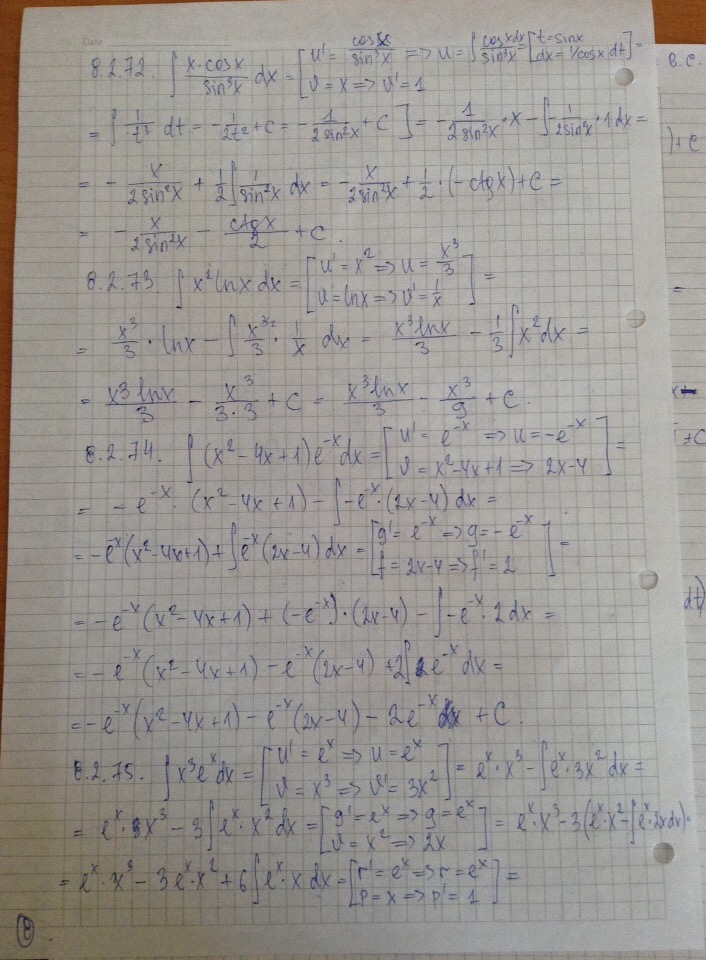 Date
8.2.72. ∫ x·cosx/sin³x dx = [u' = cosx/sin³x => u = ∫ cosx dx/sin³x = [t = sinx
dx = 1/cosx dt] =
v = x => v' = 1
= ∫ 1/t³ dt = -1/2t² + C = -1/2sin²x + C] = -1/2sin²x · x - ∫ -1/2sin²x · 1 dx =
= - x/2sin²x + 1/2 ∫ 1/sin²x dx = - x/2sin²x + 1/2 · (-ctgx) + C =
= - x/2sin²x - ctgx/2 + C.
8.2.73. ∫ x² lnx dx = [u' = x² => u = x³/3
v = lnx => v' = 1/x] =
= x³/3 · lnx - ∫ x³/3 · 1/x dx = x³lnx/3 - 1/3 ∫ x² dx =
= x³ lnx/3 - x³/3·3 + C = x³lnx/3 - x³/9 + C.
8.2.74. ∫ (x² - 4x + 1) e⁻ˣ dx = [u' = e⁻ˣ => u = -e⁻ˣ
v = x² - 4x + 1 => 2x - 4] =
= - e⁻ˣ · (x² - 4x + 1) - ∫ -e⁻ˣ · (2x - 4) dx =
= -e⁻ˣ (x² - 4x + 1) + ∫ e⁻ˣ (2x - 4) dx = [g' = e⁻ˣ => g = -e⁻ˣ
f = 2x - 4 => f' = 2] =
= -e⁻ˣ (x² - 4x + 1) + (-e⁻ˣ) · (2x - 4) - ∫ -e⁻ˣ · 2 dx =
= -e⁻ˣ (x² - 4x + 1) - e⁻ˣ (2x - 4) + 2∫ e⁻ˣ dx =
= -e⁻ˣ (x² - 4x + 1) - e⁻ˣ (2x - 4) - 2e⁻ˣ + C.
8.2.75. ∫ x³ eˣ dx = [u' = eˣ => u = eˣ
v = x³ => v' = 3x²] = eˣ · x³ - ∫ eˣ · 3x² dx =
= eˣ · x³ - 3 ∫ eˣ · x² dx = [g' = eˣ => g = eˣ
v = x² => 2x] = eˣ · x³ - 3(eˣ · x² - ∫ eˣ · 2x dx) =
= eˣ · x³ - 3eˣ · x² + 6 ∫ eˣ · x dx = [r' = eˣ => r = eˣ
p = x => p' = 1] =
8
в.с.
) + C
=
+ C
dt)